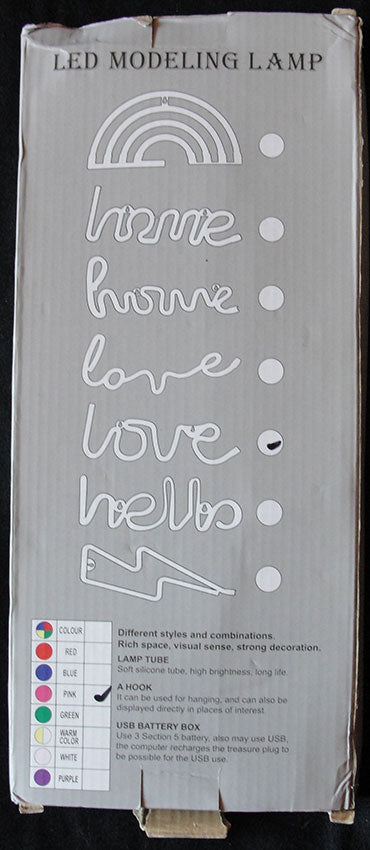 LED MODELING LAMP
home
home
love
love
hello
COLOUR
RED
BLUE
PINK
GREEN
WARM
COLOR
WHITE
PURPLE
Different styles and combinations.
Rich space, visual sense, strong decoration.
LAMP TUBE
Soft silicone tube, high brightness, long life.
A HOOK
It can be used for hanging, and can also be
displayed directly in places of interest.
USB BATTERY BOX
Use 3 Section 5 battery, also may use USB,
the computer recharges the treasure plug to
be possible for the USB use.